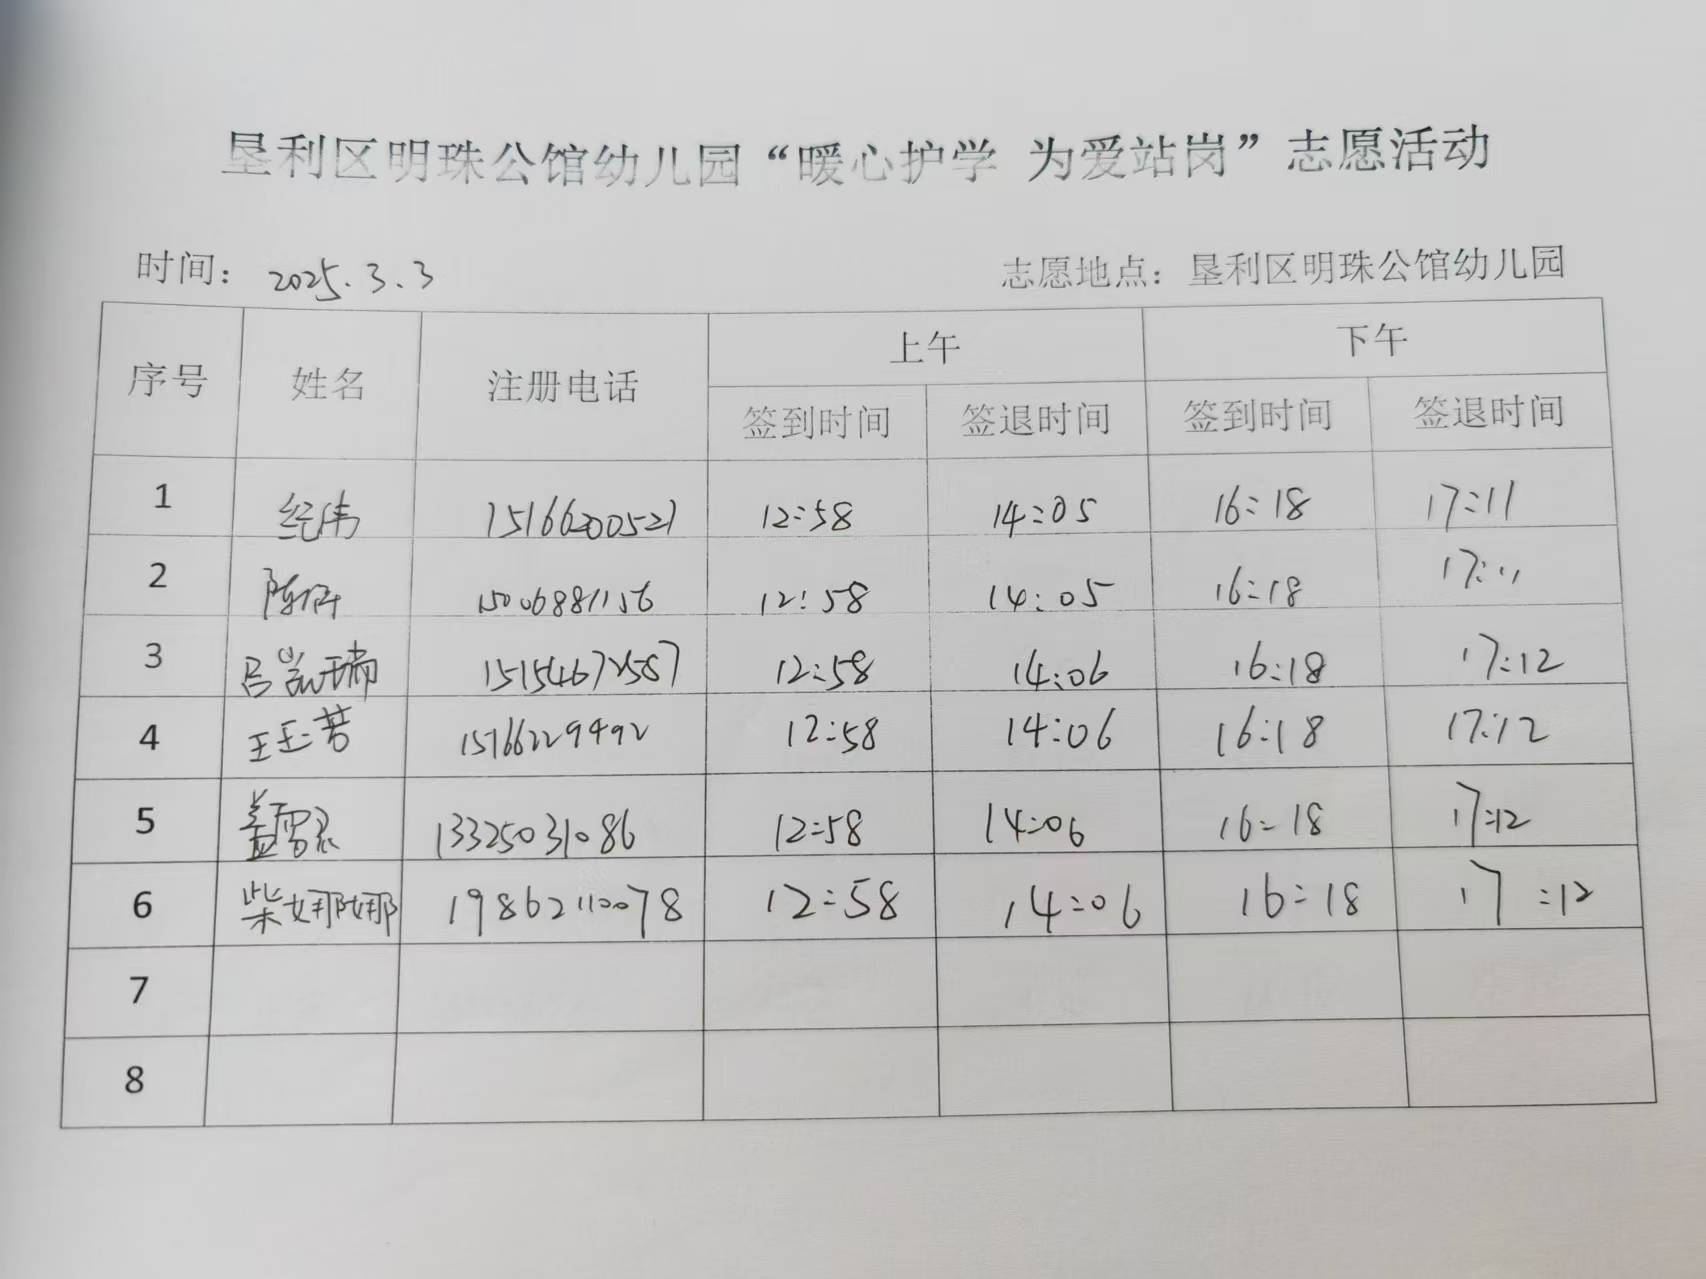 垦利区明珠公馆幼儿园“暖心护学 为爱站岗”志愿活动
时间： 2025.3.3 志愿地点：垦利区明珠公馆幼儿园
序号 姓名 注册电话 上午 下午
签到时间 签退时间 签到时间 签退时间
1 纪伟 15166200521 12:58 14:05 16:18 17:11
2 15006881156 12:58 14:05 16:18 17:11
3 吕凯瑞 15154672587 12:58 14:06 16:18 17:12
4 王玉芳 15166229492 12:58 14:06 16:18 17:12
5 13325031086 12:58 14:06 16:18 17:12
6 柴娜娜 19862110078 12:58 14:06 16:18 17:12
7
8